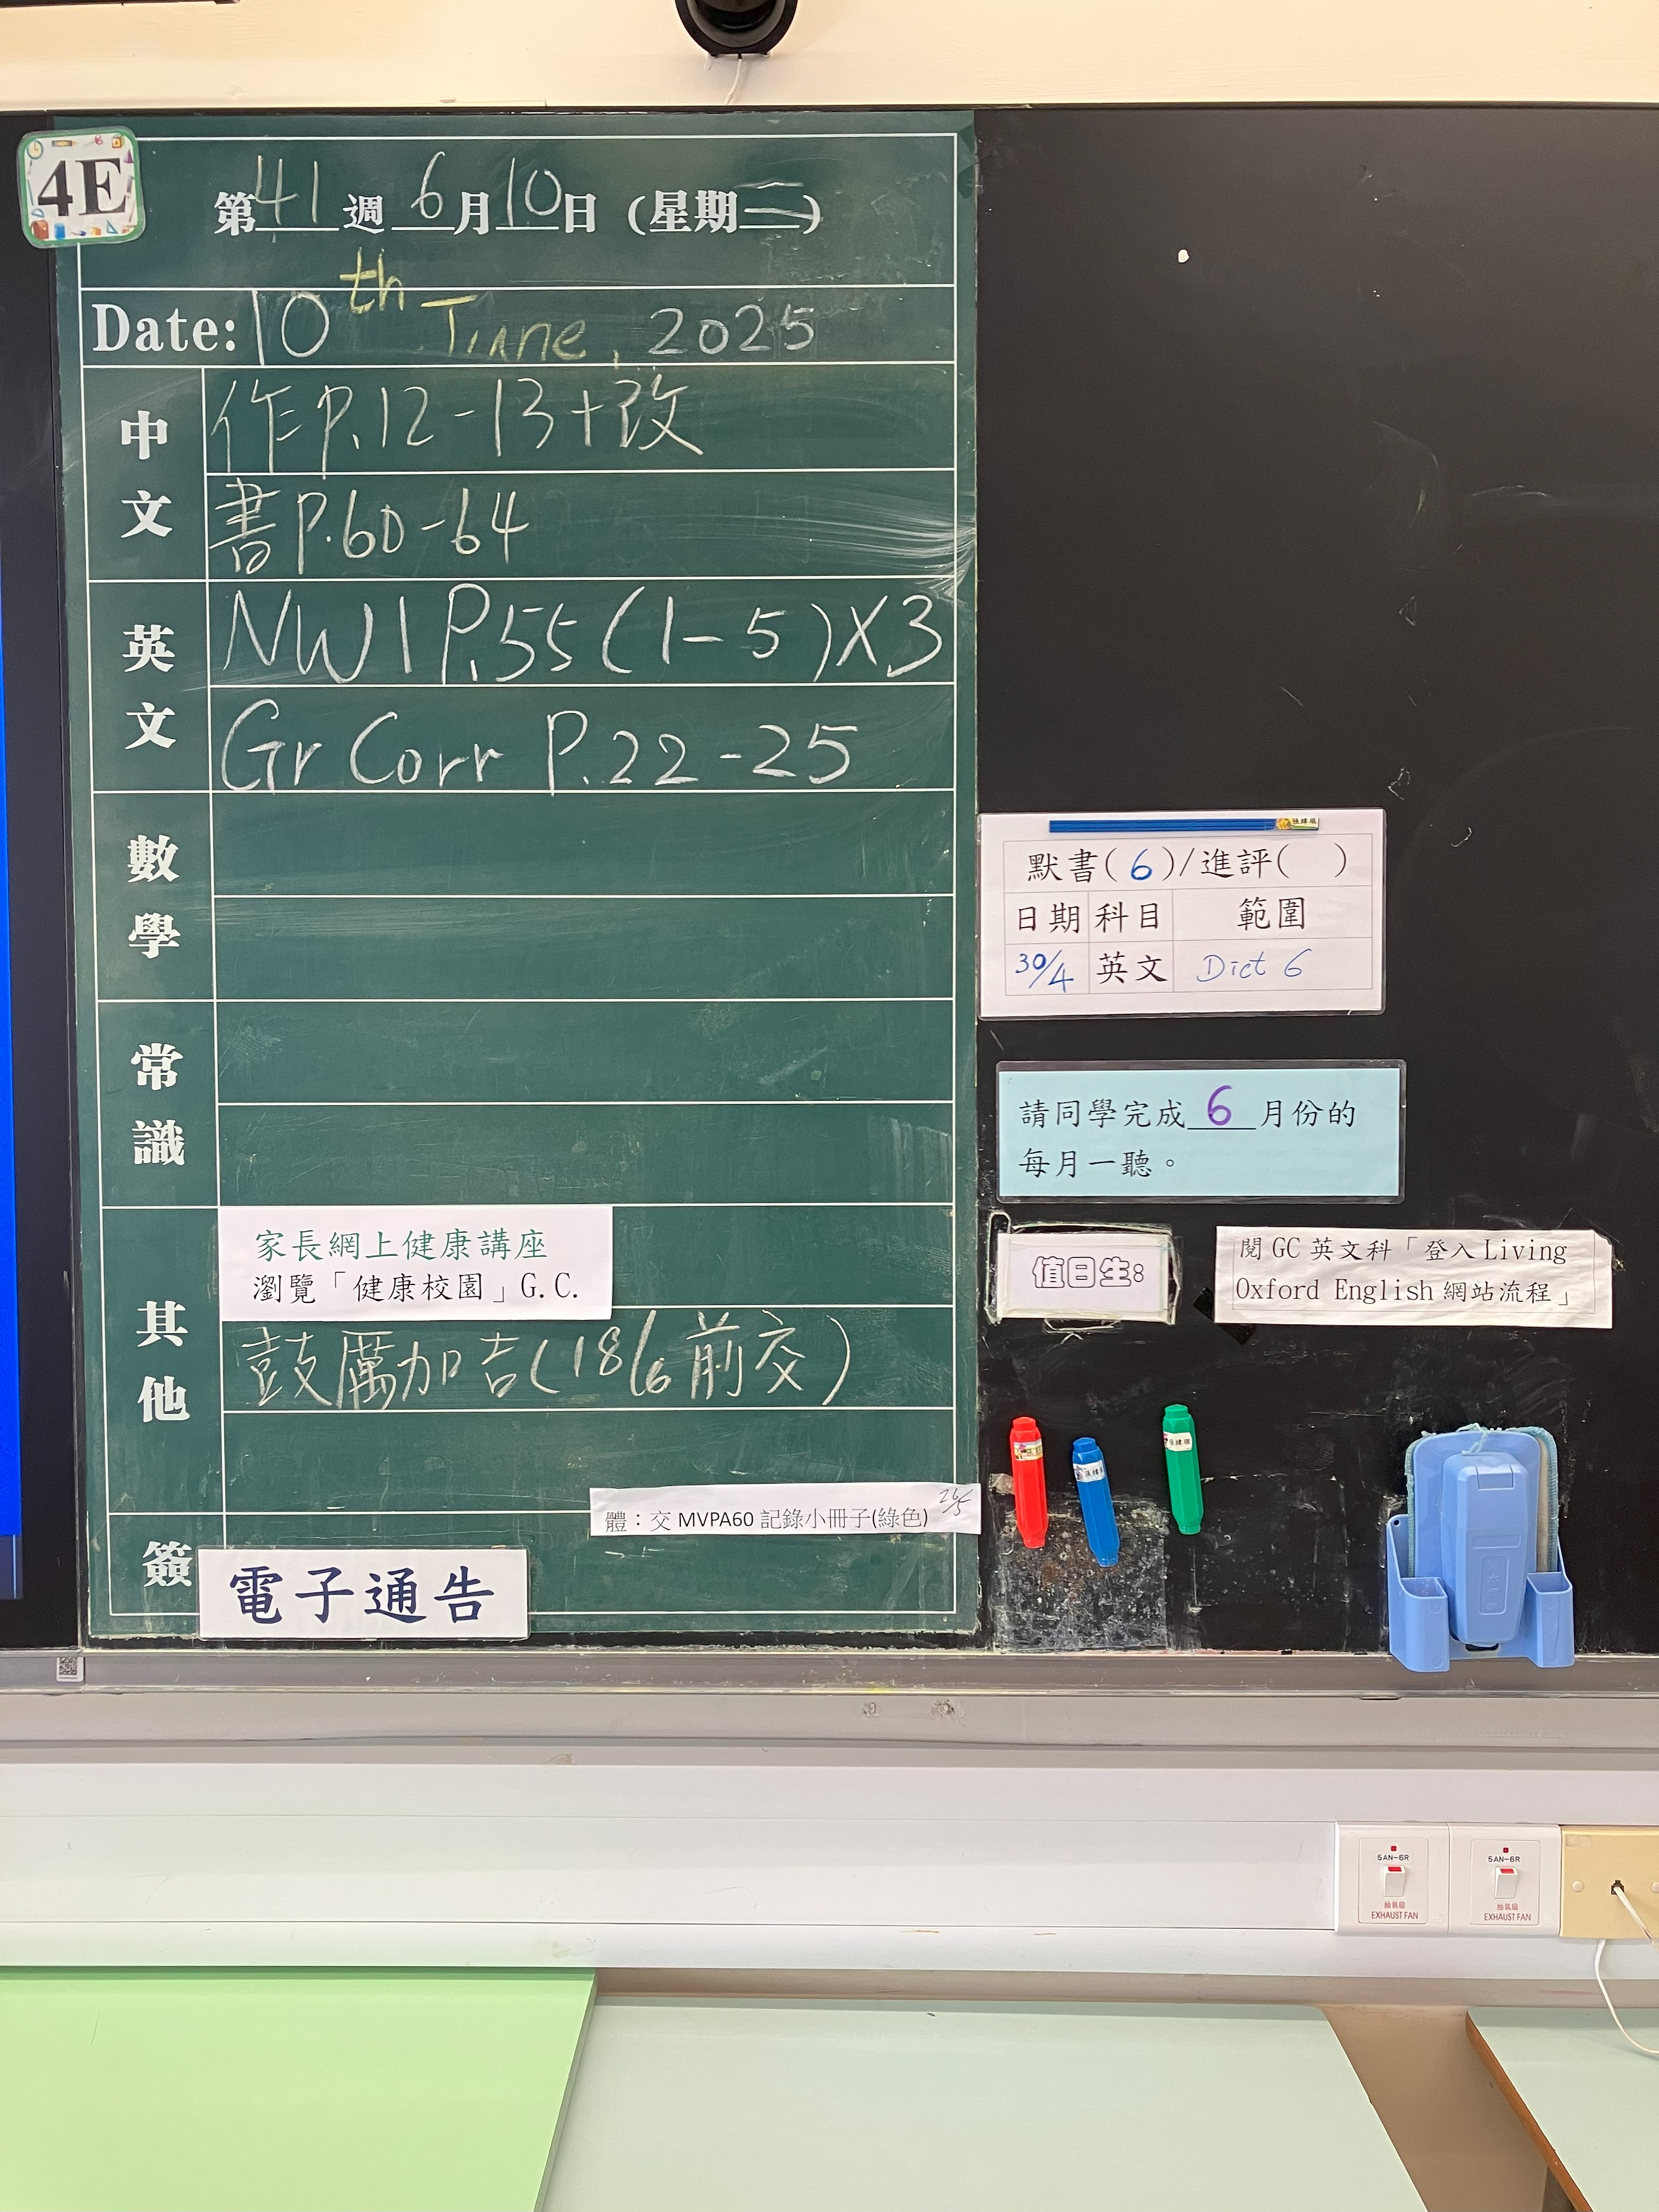 4E
第41週6月10日(星期二)
Date: 10th June, 2025
中文
作P.12-13+改
書P.60-64
英文
NW1 P.55(1-5)X3
Gr Corr P.22-25
數學
常識
其他
家長網上健康講座
瀏覽「健康校園」G.C.
鼓厲加吉(18/6前交)
體：交 MVPA60 記錄小冊子(綠色) 26/5
簽
電子通告
默書(6)/進評( )
日期 科目 範圍
30/4 英文 Dict 6
請同學完成6月份的
每月一聽。
值日生:
閱 GC 英文科「登入 Living
Oxford English 網站流程」
5AN-6R
抽氣扇
EXHAUST FAN
5AN-6R
抽氣扇
EXHAUST FAN